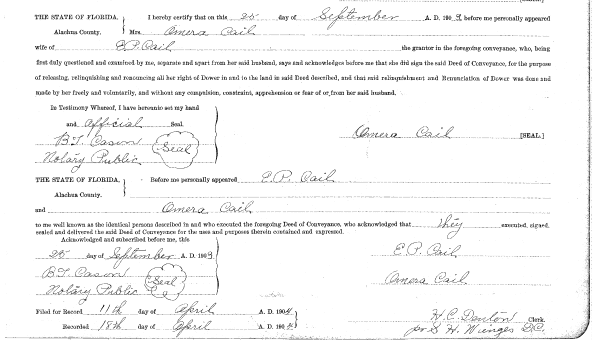 THE STATE OF FLORIDA. } I hereby certify that on this 25 day of September A. D. 1909 before me personally appeared
Alachua County. Mrs. Omera Cail
wife of E.P. Cail the grantor in the foregoing conveyance, who, being
first duly questioned and examined by me, separate and apart from her said husband, says and acknowledges before me that she did sign the said Deed of Conveyance, for the purpose
of releasing, relinquishing and renouncing all her right of Dower in and to the land in said Deed described, and that said relinquishment and Renunciation of Dower was done and
made by her freely and voluntarily, and without any compulsion, constraint, apprehension or fear of or from her said husband.
In Testimony Whereof, I have hereunto set my hand
and official Seal.
B.T. Cason Seal Omera Cail [SEAL.]
Notary Public
THE STATE OF FLORIDA. } Before me personally appeared E.P. Cail
Alachua County.
and Omera Cail
to me well known as the identical persons described in and who executed the foregoing Deed of Conveyance, who acknowledged that they executed, signed,
sealed and delivered the said Deed of Conveyance for the uses and purposes therein contained and expressed.
Acknowledged and subscribed before me, this
25 day of September A. D. 1909 E.P. Cail
B.T. Cason Seal Omera Cail
Notary Public
Filed for Record 11th day of April A. D. 1904 H.C. Denton Clerk.
Recorded 18th day of April A. D. 1904 pr S. H. Wienges D.C.